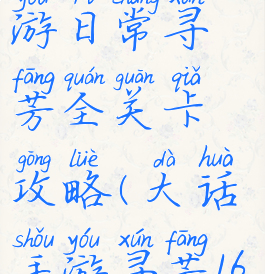 yóu rì cháng xún
游日常寻
fāng quán guān qiǎ
芳全关卡
gōng lüè dà huà
攻略(大话
shǒu yóu xún fāng
手游寻芳16